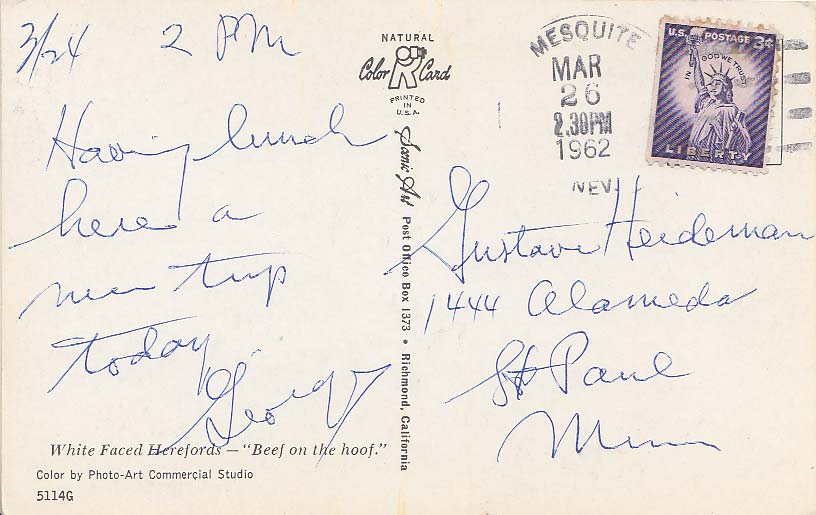 3/24 2 PM
Having lunch
here a
nice trip
today,
George
White Faced Herefords — "Beef on the hoof."
Color by Photo-Art Commercial Studio
5114G
NATURAL
Color Card
PRINTED
IN
U.S.A.
Scenic Art Post Office Box 1373 • Richmond, California
MESQUITE
MAR
26
2.30PM
1962
NEV.
U.S. POSTAGE 3¢
IN GOD WE TRUST
LIBERTY
Gustave Heideman
1444 Alameda
St Paul
Minn